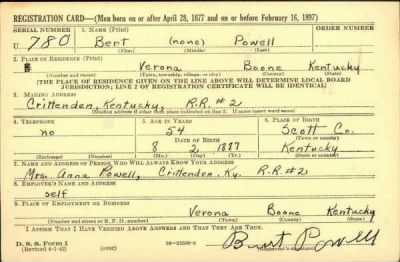 REGISTRATION CARD—(Men born on or after April 28, 1877 and on or before February 16, 1897)
SERIAL NUMBER 1. NAME (Print)
U 780 Bert (none) Powell
(First) (Middle) (Last)
2. PLACE OF RESIDENCE (Print)
Verona Boone Kentucky
(Number and street) (Town, township, village, or city) (County) (State)
[THE PLACE OF RESIDENCE GIVEN ON THE LINE ABOVE WILL DETERMINE LOCAL BOARD
JURISDICTION; LINE 2 OF REGISTRATION CERTIFICATE WILL BE IDENTICAL]
3. MAILING ADDRESS
Crittenden, Kentucky, R.R. #2
[Mailing address if other than place indicated on line 2. If same insert word same]
4. TELEPHONE 5. AGE IN YEARS 6. PLACE OF BIRTH
no 54 Scott Co.
DATE OF BIRTH (Town or county)
8 2 1887 Kentucky
(Exchange) (Number) (Mo.) (Day) (Yr.) (State or country)
7. NAME AND ADDRESS OF PERSON WHO WILL ALWAYS KNOW YOUR ADDRESS
Mrs. Anna Powell, Crittenden, Ky. R.R. #2
8. EMPLOYER'S NAME AND ADDRESS
self
9. PLACE OF EMPLOYMENT OR BUSINESS
Verona Boone Kentucky
(Number and street or R. F. D. number) (Town) (County) (State)
I AFFIRM THAT I HAVE VERIFIED ABOVE ANSWERS AND THAT THEY ARE TRUE.
D. S. S. Form 1 (over)
(Revised 4-1-42)
Bert Powell